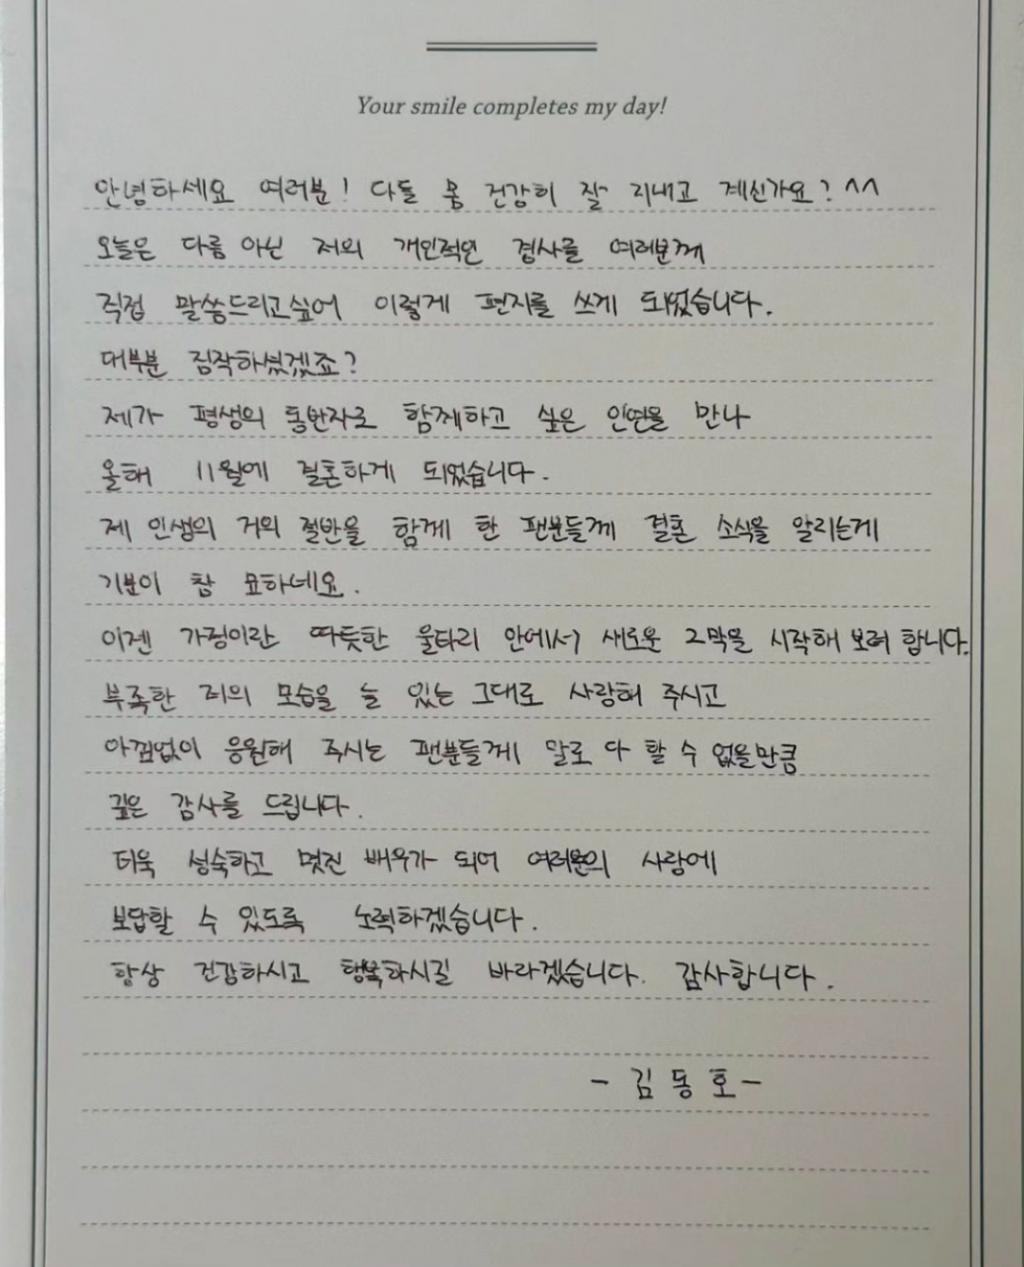 Your smile completes my day!
안녕하세요 여러분! 다들 몸 건강히 잘 지내고 계신가요? ^^
오늘은 다름 아닌 저의 개인적인 경사를 여러분께
직접 말씀드리고싶어 이렇게 편지를 쓰게 되었습니다.
대부분 짐작하셨겠죠?
제가 평생의 동반자로 함께하고 싶은 인연을 만나
올해 11월에 결혼하게 되었습니다.
제 인생의 거의 절반을 함께 한 팬분들께 결혼 소식을 알리는게
기분이 참 묘하네요.
이젠 가정이란 따듯한 울타리 안에서 새로운 2막을 시작해 보려 합니다.
부족한 저의 모습을 늘 있는 그대로 사랑해 주시고
아낌없이 응원해 주시는 팬분들께 말로 다 할 수 없을만큼
깊은 감사를 드립니다.
더욱 성숙하고 멋진 배우가 되어 여러분의 사랑에
보답할 수 있도록 노력하겠습니다.
항상 건강하시고 행복하시길 바라겠습니다. 감사합니다.
- 김동호 -